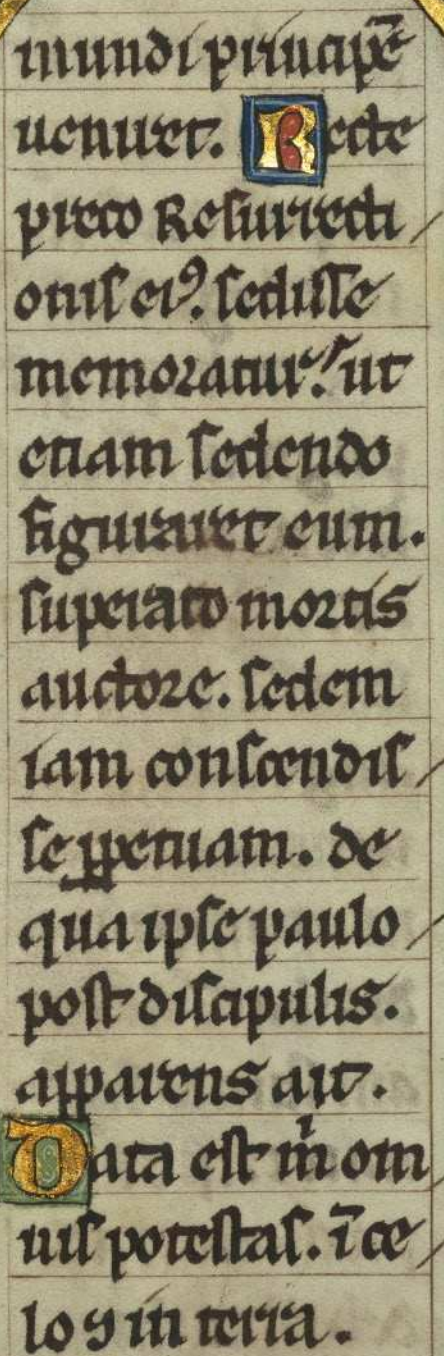 mundi principē
ueniret. Recte
preco Resurrecti/
onis ei⁹. sedisse
memoratur. ut
etiam sedendo
figuraret eum.
superato mortis
auctore. sedem
iam conscendis/
se ꝑpetuam. de
qua ipse paulo/
post discipulis.
apparens ait.
Data est m̅ om
nis potestas. ī ce/
lo ⁊ in terra.